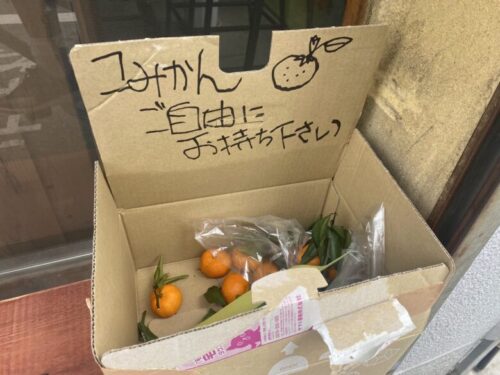 こみかん
ご自由に
お持ち下さい